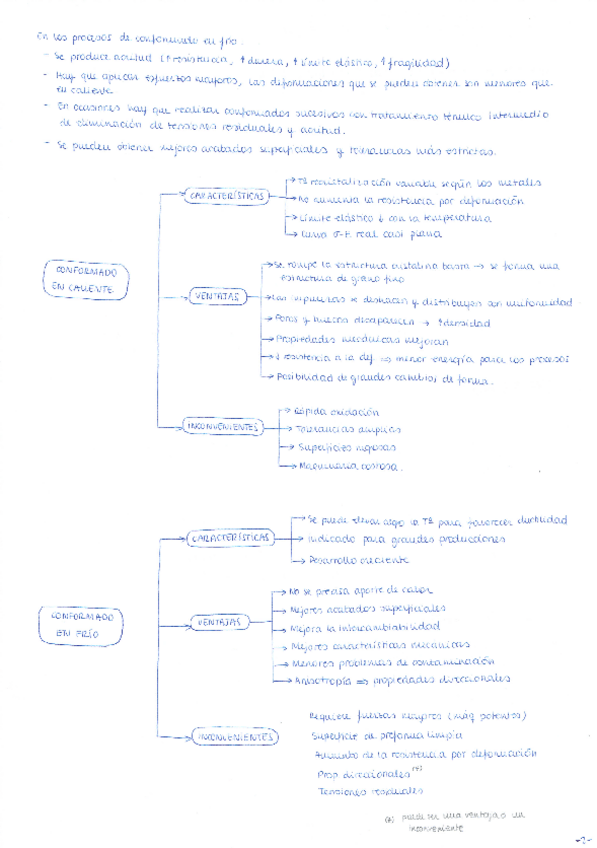 En los procesos de conformado en frío:
- Se produce acritud (↑resistencia, ↑dureza, ↑límite elástico, ↑fragilidad)
- Hay que aplicar esfuerzos mayores, las deformaciones que se pueden obtener son menores que
en caliente
- En ocasiones hay que realizar conformados sucesivos con tratamiento térmico intermedio
de eliminación de tensiones residuales y acritud.
- Se pueden obtener mejores acabados superficiales y tolerancias más estrictas.
CONFORMADO
EN CALIENTE
CARACTERÍSTICAS
Tª recristalización variable según los metales
No aumenta la resistencia por deformación
Límite elástico ↓ con la temperatura
Curva σ-ε real casi plana
VENTAJAS
Se rompe la estructura cristalina basta → se forma una
estructura de grano fino
Las impurezas se deshacen y distribuyen con uniformidad
Poros y huecos desaparecen → ↑densidad
Propiedades mecánicas mejoran
↓ resistencia a la def. ⇒ menor energía para los procesos
Posibilidad de grandes cambios de forma.
INCONVENIENTES
Rápida oxidación
Tolerancias amplias
Superficies rugosas
Maquinaria costosa.
CONFORMADO
EN FRÍO
CARACTERÍSTICAS
Se puede elevar algo la Tª para favorecer ductilidad
Indicado para grandes producciones
Desarrollo creciente
VENTAJAS
No se precisa aporte de calor
Mejores acabados superficiales
Mejora la intercambiabilidad
Mejores características mecánicas
Menores problemas de contaminación
Anisotropía ⇒ propiedades direccionales
INCONVENIENTES
Requiere fuerzas mayores (máq potentes)
Superficie de preforma limpia
Aumento de la resistencia por deformación
Prop direccionales (*)
Tensiones residuales
(*) puede ser una ventaja o un
inconveniente
-2-